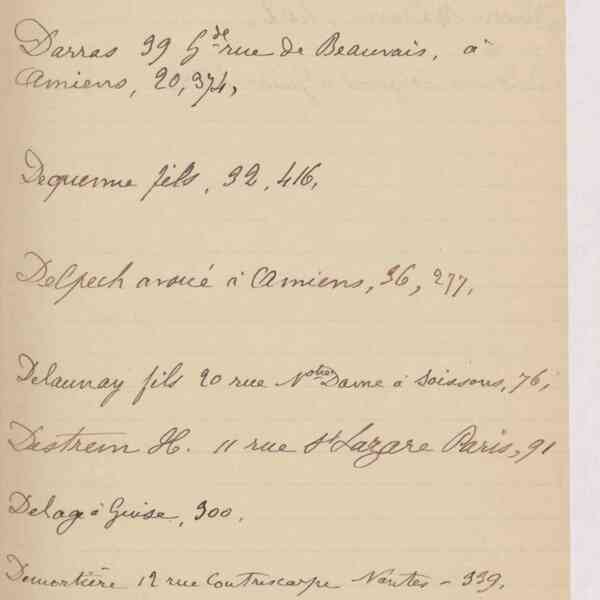 Darras 39 Gde rue de Beauvais, à
Amiens, 20, 374,
Dequenne fils, 32, 416,
Delpech avoué à Amiens, 36, 277,
Delaunay fils 20 rue Notre Dame à Soissons, 76,
Destrem H. 11 rue St Lazare Paris, 91
Delage à Guise, 300.
Demortière 12 rue Contrescarpe Nantes - 339.